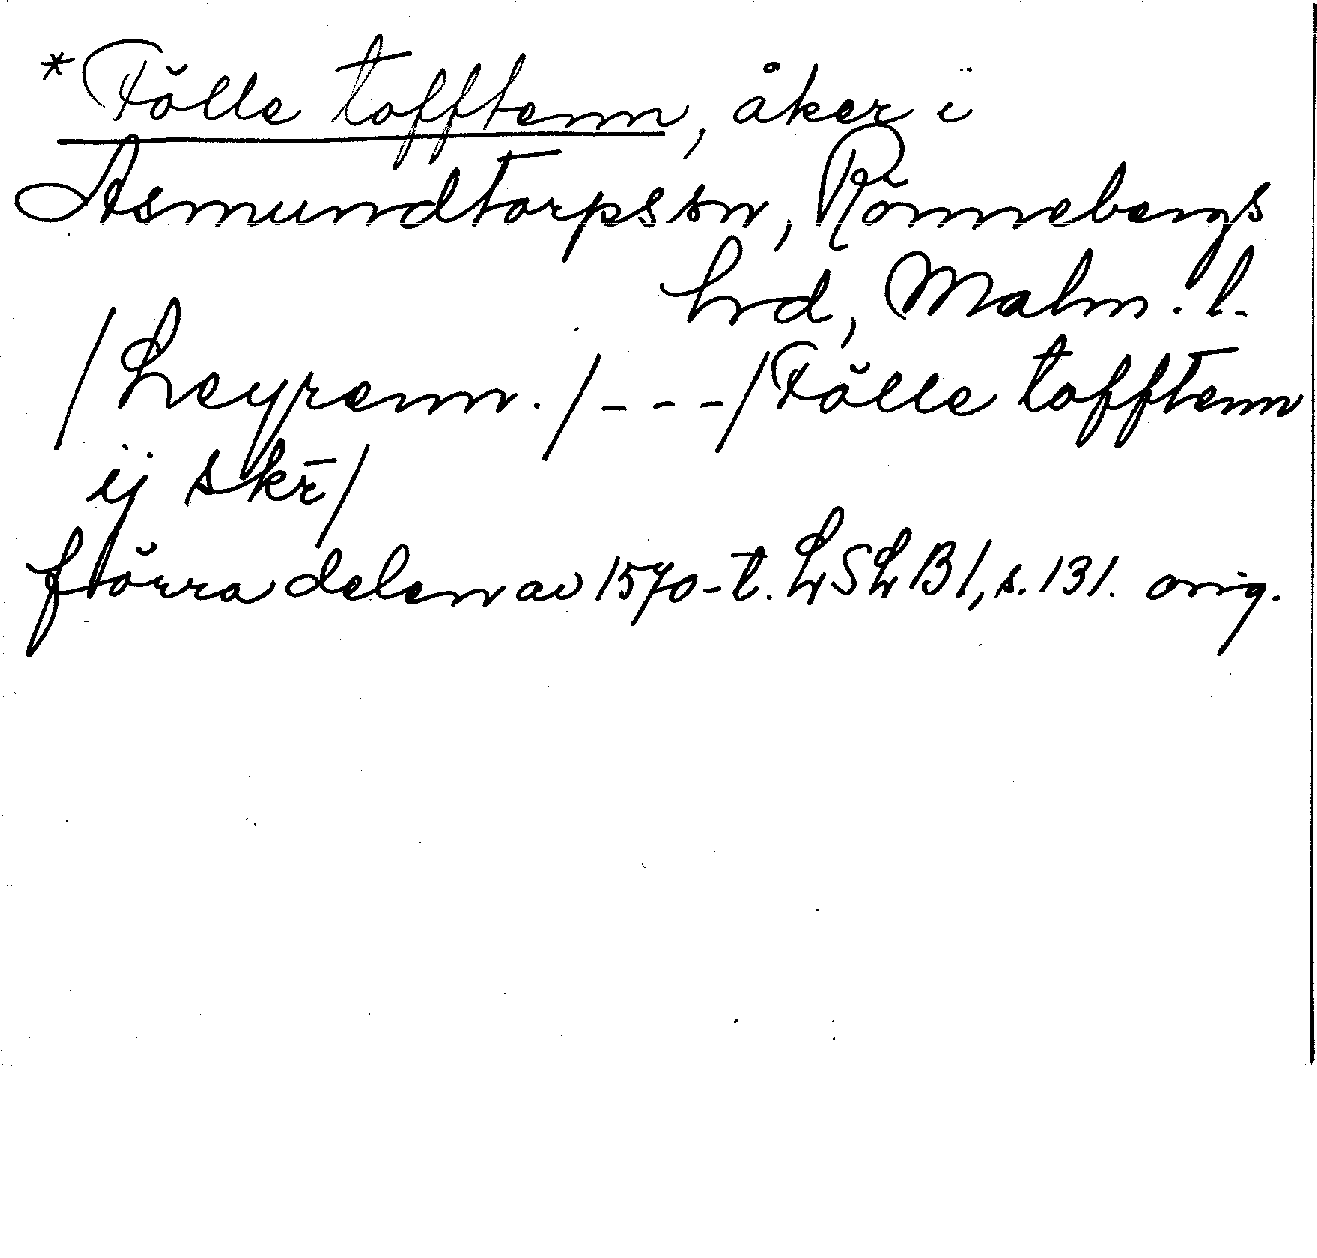 *Fölle tofftenn, åker i
Asmundtorps sn, Rönnebergs
hrd, Malm. l.
/Leyrenn./---/Fölle tofftenn
ij skr̄/
förra delen av 1570-t. LSLB1, s. 131. orig.